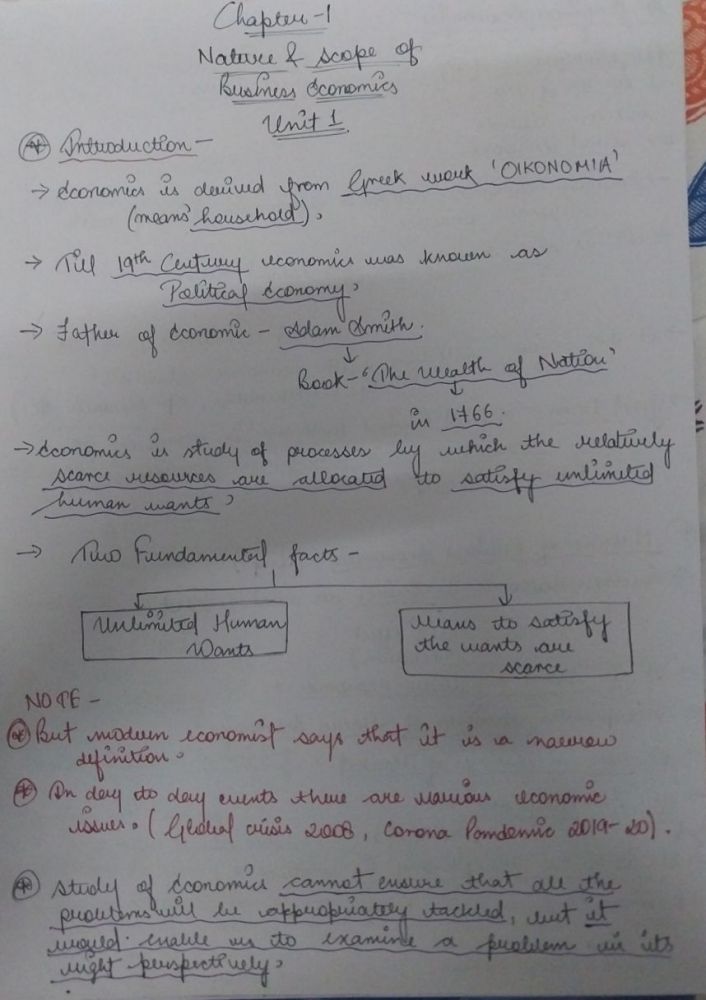 Chapter-1
Nature & scope of
Business Economics
Unit 1.
Introduction -
→ Economics is derived from Greek work 'OIKONOMIA'
(means 'household).
→ Till 19th Century economics was known as
Political Economy.
→ Father of Economic - Adam Smith.
↓
Book - 'The Wealth of Nation'
↓
in 1766.
→ Economics is study of processes by which the relatively
scarce resources are allocated to satisfy unlimited
human wants.
→ Two Fundamental facts -
Unlimited Human
Wants
Means to satisfy
the wants are
scarce
NOTE -
But modern economist says that it is a narrow
definition.
In day to day events there are various economic
issues. (Global crisis 2008, Corona Pandemic 2019-20).
Study of Economics cannot ensure that all the
problems will be appropriately tackled, but it
would enable us to examine a problem in its
right perspectively.